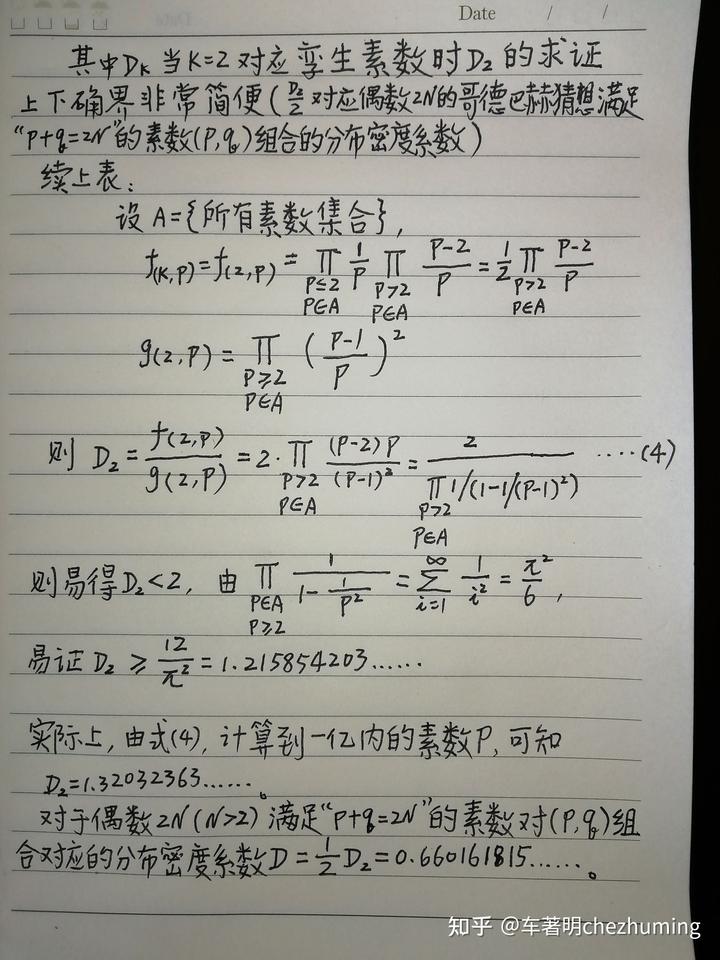 Date / /
其中Dk当K=2对应孪生素数时D₂的求证
上下确界非常简便(D₂/2对应偶数2N的哥德巴赫猜想满足
“P+q=2N”的素数(P,q)组合的分布密度系数)
续上表:
设A={所有素数集合},
f(K,P)=f(2,P)=∏(P≤2, P∈A) 1/P ∏(P>2, P∈A) (P-2)/P=1/2∏(P>2, P∈A) (P-2)/P
g(2,P)=∏(P≥2, P∈A) ((P-1)/P)²
则 D₂=f(2,P)/g(2,P)=2·∏(P>2, P∈A) (P-2)P/(P-1)²=2/∏(P>2, P∈A) 1/(1-1/(P-1)²) ····(4)
则易得D₂<2, 由∏(P∈A, P≥2) 1/(1-1/P²)=∑(i=1, ∞) 1/i²=π²/6,
易证D₂≥12/π²=1.215854203......
实际上,由式(4),计算到一亿内的素数P,可知
D₂=1.32032363......。
对于偶数2N(N>2)满足“P+q=2N”的素数对(P,q)组
合对应的分布密度系数D=1/2D₂=0.660161815......。
知乎 @车著明chezhuming